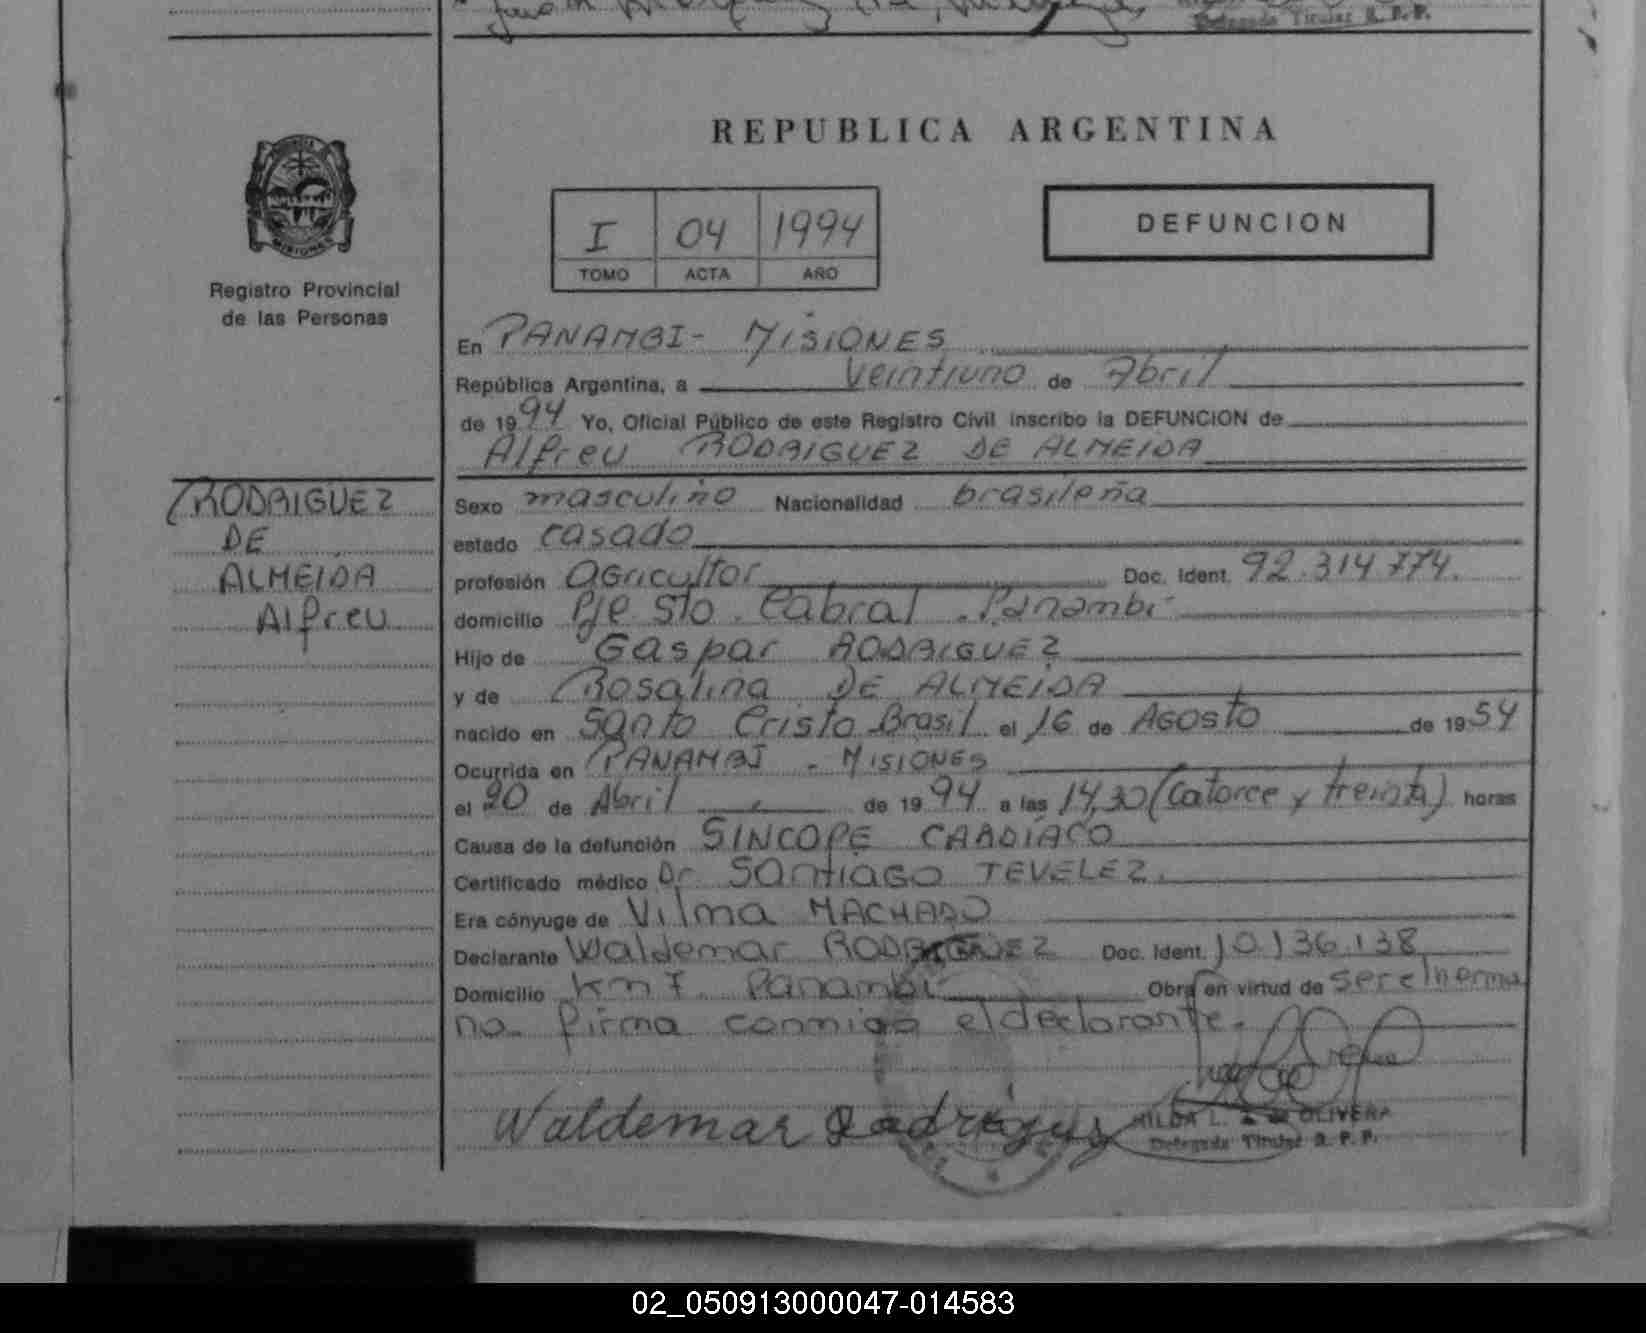 Delegada Titular R. P. P.
REPUBLICA ARGENTINA
I 04 1994
TOMO ACTA AÑO
DEFUNCION
MISIONES
Registro Provincial
de las Personas
En PANAMBI - MISIONES
República Argentina, a Veintiuno de Abril
de 1994 Yo, Oficial Público de este Registro Civil inscribo la DEFUNCION de
Alfreu RODRIGUEZ DE ALMEIDA
RODRIGUEZ
DE
ALMEIDA
Alfreu
Sexo masculino Nacionalidad brasileña
estado casado
profesión Agricultor Doc. Ident. 92.314.774.
domicilio Pje Sto. Cabral . Panambi
Hijo de Gaspar RODRIGUEZ
y de Rosalina DE ALMEIDA
nacido en Santo Cristo Brasil el 16 de Agosto de 1954
Ocurrida en PANAMBI - MISIONES
el 20 de Abril de 1994 a las 14,30 (Catorce y treinta) horas
Causa de la defunción SINCOPE CARDIACO
Certificado médico Dr. Santiago TEVELEZ.
Era cónyuge de Vilma MACHADO
Declarante Waldemar RODRIGUEZ Doc. Ident. 10.136.138
Domicilio Km 7. Panambi Obra en virtud de ser el herma
no. firma conmigo el declarante.
Waldemar Rodrigues
HILDA L. de OLIVERA
Delegada Titular R. P. P.
02_050913000047-014583